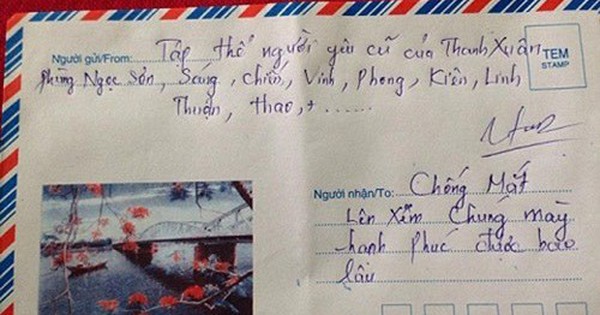 Người gửi/From: Tập thể người yêu cũ của Thanh Xuân
phùng Ngọc Sơn, Sáng, chiến, Vinh, Phong, Kiên, Linh
Thuận, thao, + ......
TEM
STAMP
Người nhận/To: Chồng Mất
Lên Xem Chúng mày
hạnh phúc được bao
lâu